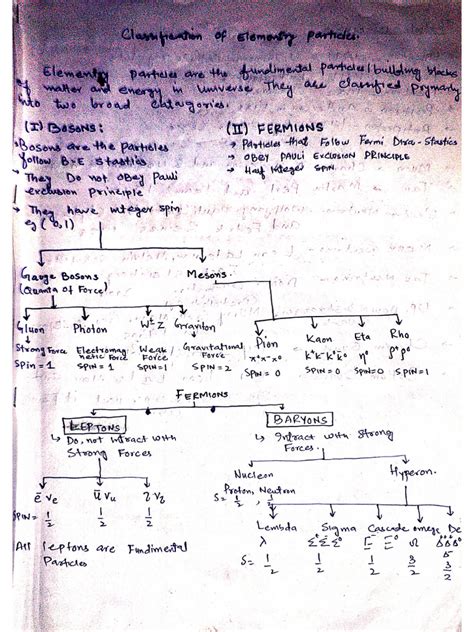 Classification of Elementry particles.
Elementry particles are the fundimental particles/building blocks
of matter and energy in universe They are classified prymarly
into two broad catagories.
(I) BOSONS:
Bosons are the Particles
follow B-E Stastics
→ They Do not obey Pauli
exclusion Principle
→ They have integer spin
eg (0,1)
(II) FERMIONS
→ Particles that Follow Fermi Dira-Stastics
→ OBEY PAULI EXCLUSION PRINCIPLE
→ Half Integer SPIN.
Gauge Bosons
(Quanta of Force)
Mesons.
Gluon Photon W± Z Graviton
Strong Force Electromagnetic Force Weak Force Gravitational Force
Spin = 1 SPIN = 1 SPIN=1 SPIN = 2
Pion Kaon Eta Rho
π⁺π⁻π⁰ η⁰
SPIN = 0 SPIN=0 SPIN=0 SPIN=1
FERMIONS
LEPTONS
↳ Do, not intract with
Strong Forces
SPIN = 1/2 1/2 1/2
All leptons are Fundimental
Particles
BARYONS
↳ Intract with Strong
Forces.
Nucleon Hyperon.
Proton, Neutron
S = 1/2, 1/2
Lembda Sigma Cascade omega De
λ Ω
S = 1/2 1/2 1/2 3/2 3/2